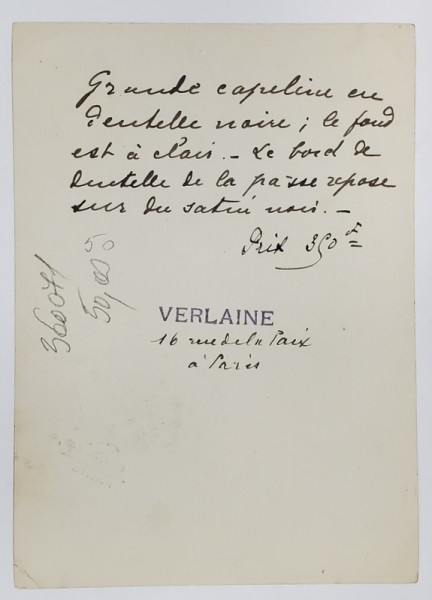 Grande capeline en
dentelle noire ; le fond
est à clair. - Le bord de
dentelle de la passe repose
sur du satin noir. -
Prix 350 f =
VERLAINE
16 rue de la Paix
à Paris
360071